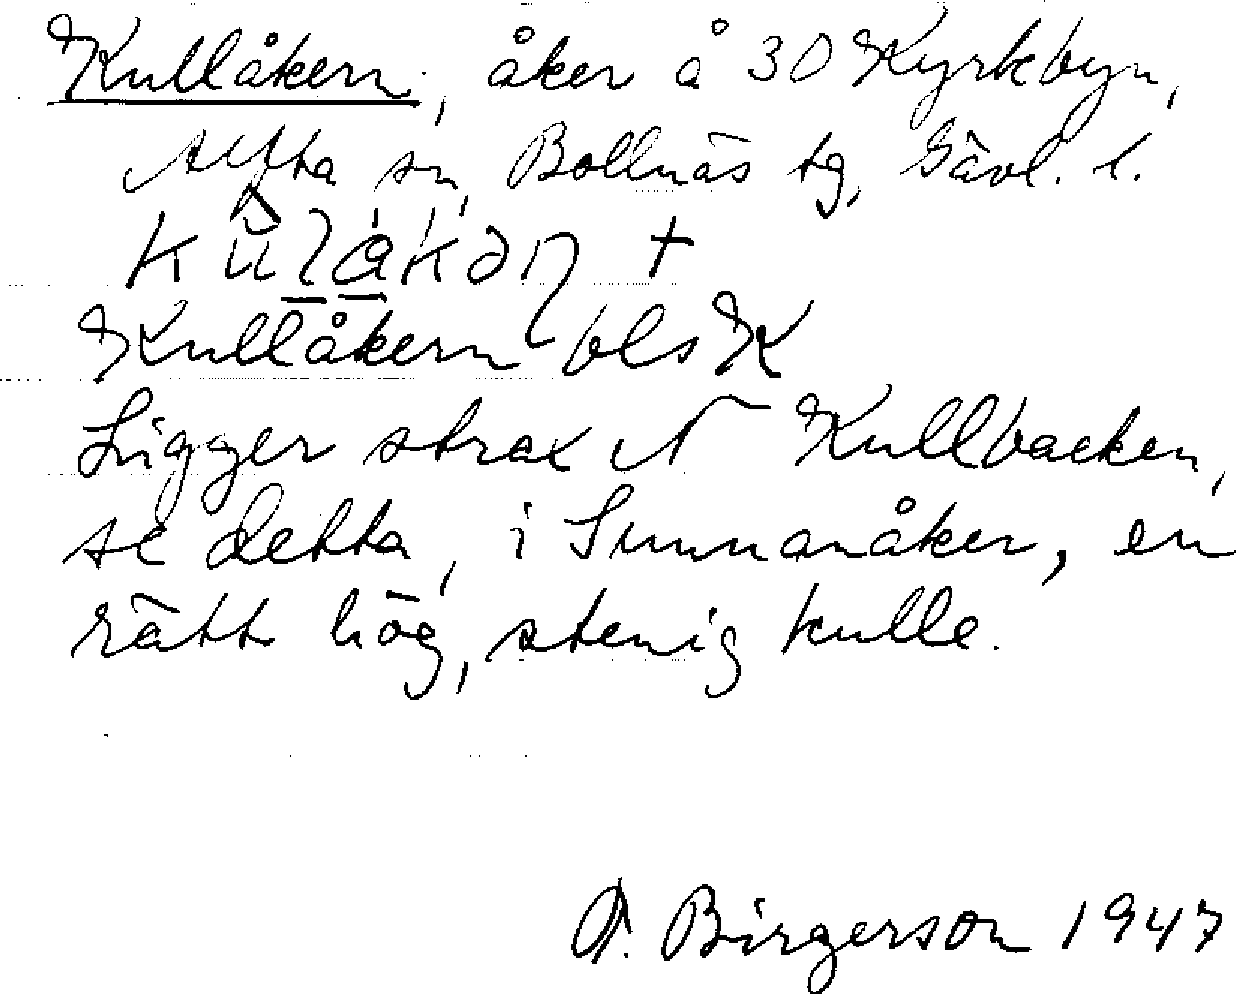 Kullåkern, åker å 30 Kyrkbyn,
Alfta sn, Bollnäs tg, Gävl. l.
Kullåkern bls K
Ligger strax N Kullbacken,
se detta, i Sunnanåker, en
rätt hög, stenig kulle.
Birgerson 1947